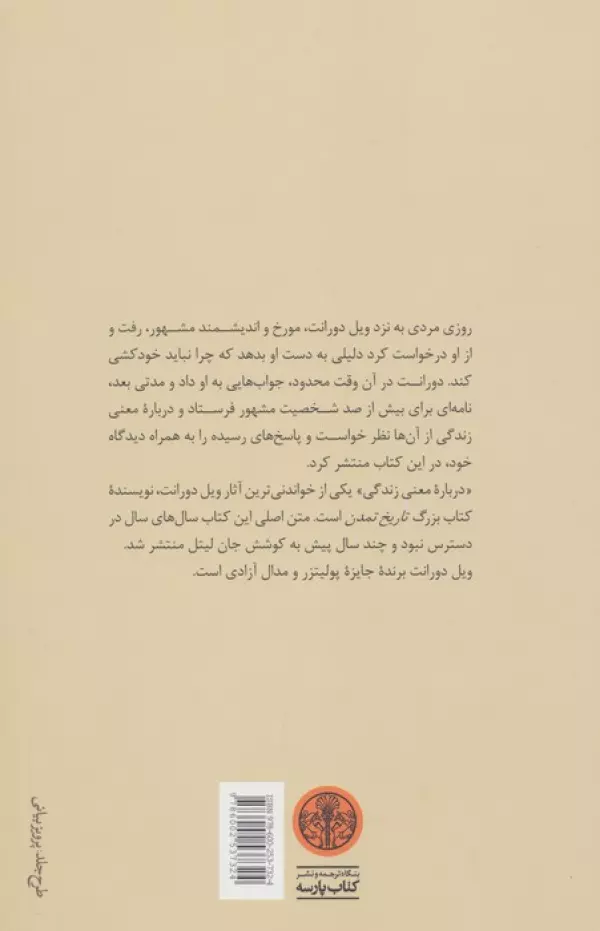 روزی مردی به نزد ویل دورانت، مورخ و اندیشمند مشهور، رفت و
از او درخواست کرد دلیلی به دست او بدهد که چرا نباید خودکشی
کند. دورانت در آن وقت محدود، جواب‌هایی به او داد و مدتی بعد،
نامه‌ای برای بیش از صد شخصیت مشهور فرستاد و دربارهٔ معنی
زندگی از آن‌ها نظر خواست و پاسخ‌های رسیده را به همراه دیدگاه
خود، در این کتاب منتشر کرد.
«دربارهٔ معنی زندگی» یکی از خواندنی‌ترین آثار ویل دورانت، نویسندهٔ
کتاب بزرگ تاریخ تمدن است. متن اصلی این کتاب سال‌های سال در
دسترس نبود و چند سال پیش به کوشش جان لیتل منتشر شد.
ویل دورانت برندهٔ جایزهٔ پولیتزر و مدال آزادی است.
ISBN 978-600-253-732-4
9786002537324
بنگاه ترجمه و نشر
کتاب پارسه
طرح جلد: پرویز بیانی